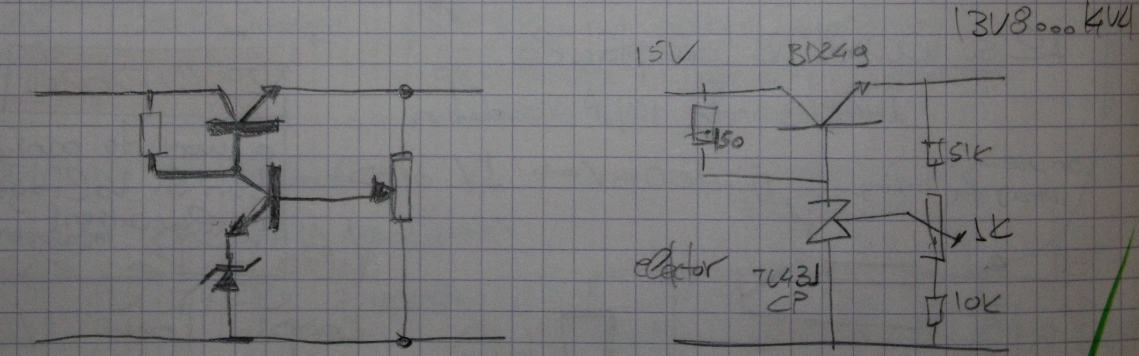 13V8...
15V
BD249
150
51K
1K
elector
TL431
CP
10K